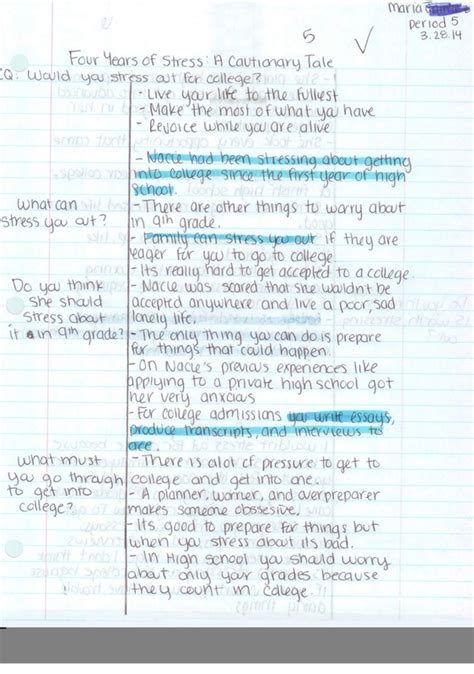 Maria
period 5
3.28.14
5 ✓
Four Years of Stress: A Cautionary Tale
EQ: Would you stress out for college?
- Live your life to the fullest
- Make the most of what you have
- Rejoice while you are alive
- Nacie had been stressing about getting
into college since the first year of high
school.
What can - There are other things to worry about
stress you out? in 9th grade.
- Family can stress you out if they are
eager for you to go to college.
- Its really hard to get accepted to a college.
Do you think - Nacie was scared that she wouldnt be
she should accepted anywhere and live a poor, sad
stress about lonely life.
it in 9th grade? - The only thing you can do is prepare
for things that could happen.
- On Nacie's previous experiences like
applying to a private high school got
her very anxious
- For college admissions you write essays,
produce transcripts, and interviews to
ace.
What must - There is alot of pressure to get to
you go through college and get into one.
to get into - A planner, worrier, and overpreparer
college? makes someone obssesive.
- Its good to prepare for things but
when you stress about its bad.
- In High school you should worry
about only your grades because
they count in college.